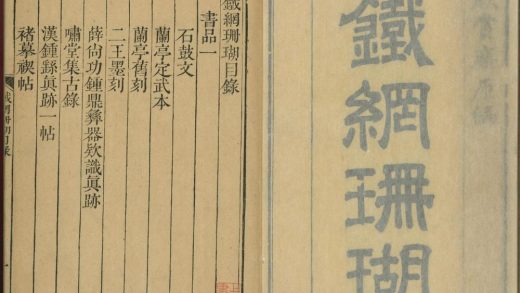 鐵網珊瑚
鐵網珊瑚目錄
書品一
石鼓文
蘭亭定武本
蘭亭舊刻
二王墨刻
薛尚功鍾鼎彝器欵識眞跡
嘯堂集古錄
漢鍾繇眞跡一帖
褚摹禊帖